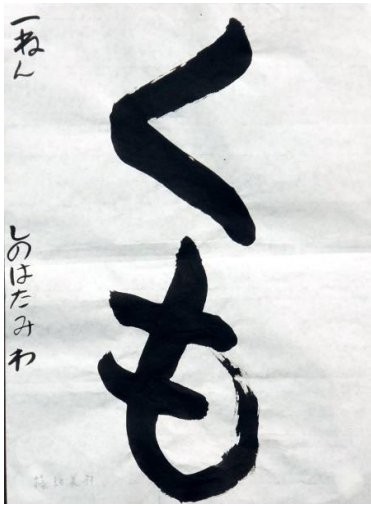 くも
一ねん
しのはたみわ